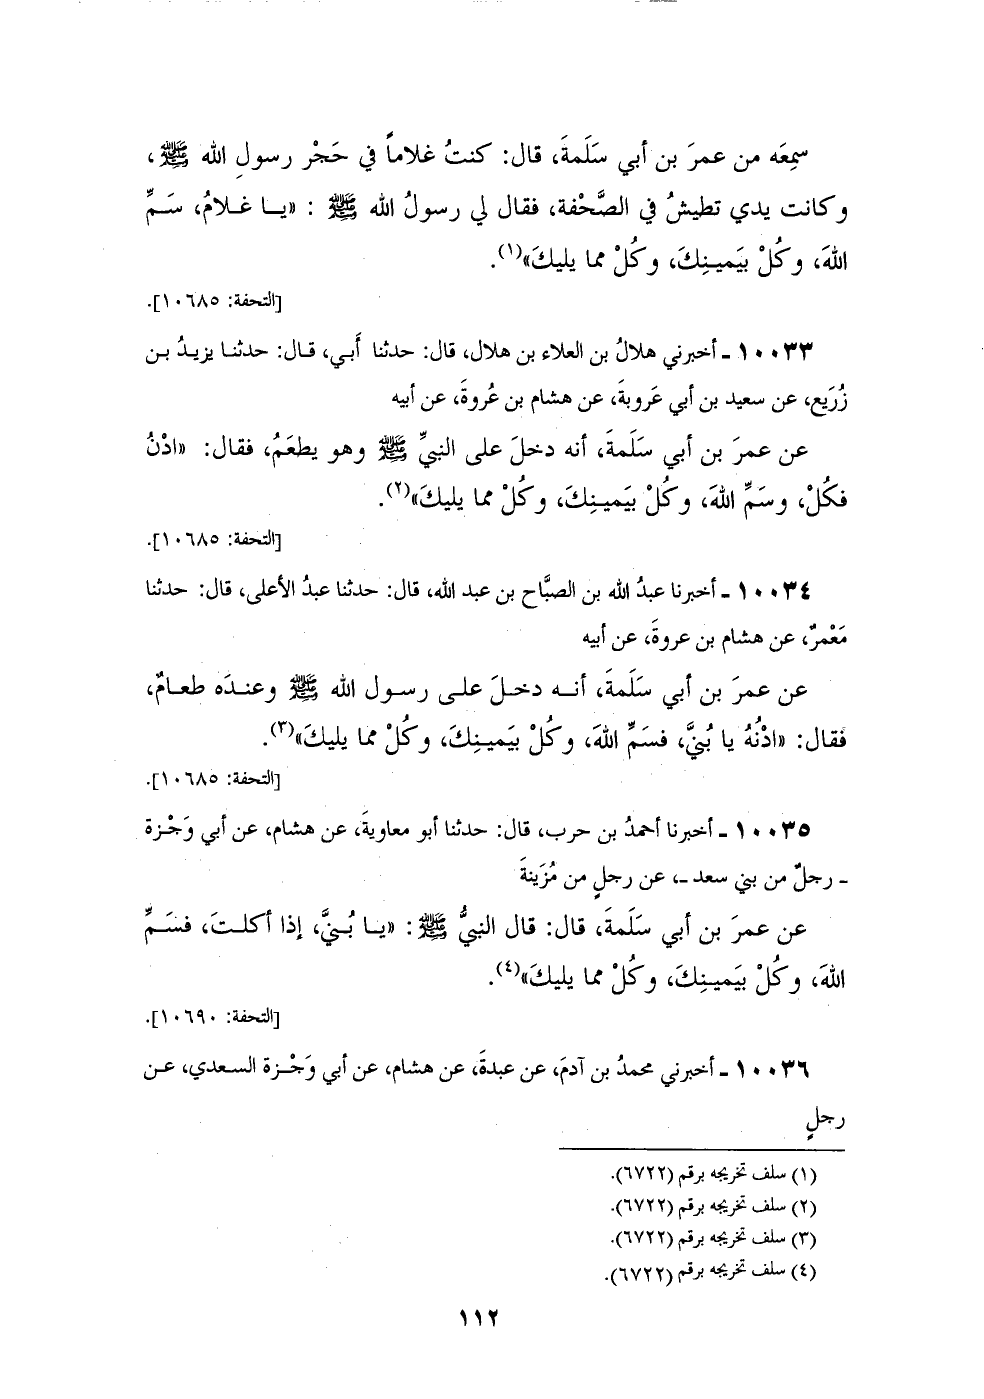 سمِعَه من عمرَ بن أبي سَلَمةَ، قال: كنتُ غلاماً في حَجْرِ رسولِ الله ﷺ،
وكانت يدي تطيشُ في الصَّحْفة، فقال لي رسولُ الله ﷺ : «يـا غـلامُ، سَـمِّ
اللهَ، وكُلْ بيَمينِكَ، وكُلْ مما يليكَ»(١).
[التحفة: ١٠٦٨٥].
١٠٠٣٣ ـ أخبرني هلالُ بن العلاء بن هلال، قال: حدثنا أَبي، قـال: حدثنـا يزيـدُ بـن
زُرَيع، عن سعيد بن أبي عَروبةَ، عن هشام بن عُروةَ، عن أبيه
عن عمرَ بن أبي سَلَمةَ، أنه دخلَ على النبيِّ ﷺ وهو يطعَمُ، فقال: «ادْنُ
فكُلْ، وسَمِّ اللهَ، وكُلْ بيَمينِكَ، وكُلْ مما يليكَ»(٢).
[التحفة: ١٠٦٨٥].
١٠٠٣٤ ـ أخبرنا عبدُ الله بن الصبَّاح بن عبد الله، قال: حدثنا عبدُ الأعلى، قال: حدثنا
مَعْمرٌ، عن هشام بن عروةَ، عن أبيه
عن عمرَ بن أبي سَلَمةَ، أنـه دخـلَ علـى رسـول الله ﷺ وعنـدَه طعـامٌ،
فقال: «ادْنُهْ يا بُنيَّ، فسَمِّ اللهَ، وكُلْ بيَمينِكَ، وكُلْ مما يليكَ»(٣).
[التحفة: ١٠٦٨٥].
١٠٠٣٥ ـ أخبرنا أحمدُ بن حرب، قال: حدثنا أبو معاويةَ، عن هشام، عن أبي وَجْـزة
ـ رجلٌ من بني سعد ـ، عن رجلٍ من مُزَينةَ
عن عمرَ بن أبي سَلَمةَ، قال: قال النبيُّ ﷺ: «يـا بُـنيَّ، إذا أكلـتَ، فسَـمِّ
اللهَ، وكُلْ بيَمينِكَ، وكُلْ مما يليكَ»(٤).
[التحفة: ١٠٦٩٠].
١٠٠٣٦ ـ أخبرني محمدُ بن آدمَ، عن عبدةَ، عن هشام، عن أبي وَجْـزة السـعدي، عـن
رجلٍ
(١) سلف تخريجه برقم (٦٧٢٢).
(٢) سلف تخريجه برقم (٦٧٢٢).
(٣) سلف تخريجه برقم (٦٧٢٢).
(٤) سلف تخريجه برقم (٦٧٢٢).
١١٢